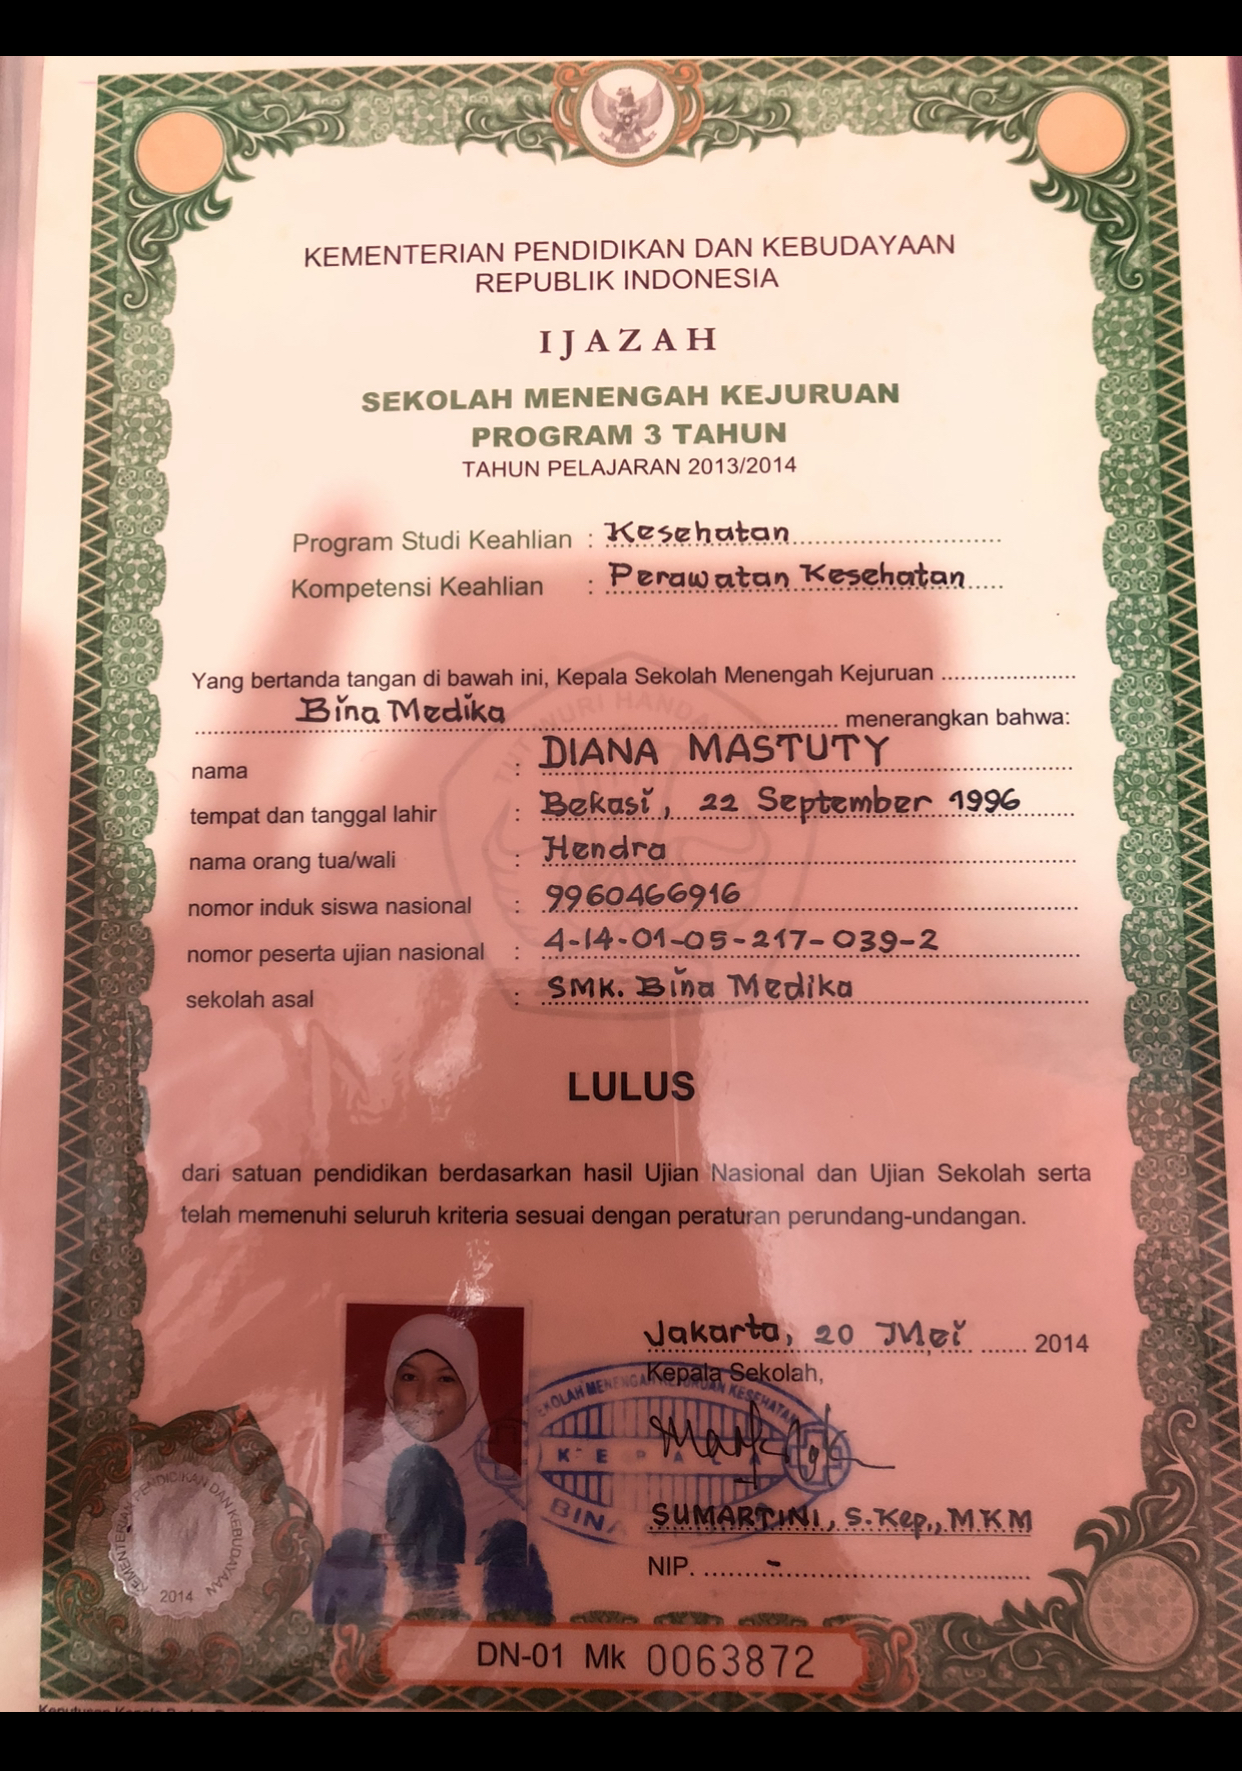 KEMENTERIAN PENDIDIKAN DAN KEBUDAYAAN
REPUBLIK INDONESIA
IJAZAH
SEKOLAH MENENGAH KEJURUAN
PROGRAM 3 TAHUN
TAHUN PELAJARAN 2013/2014
Program Studi Keahlian : Kesehatan
Kompetensi Keahlian : Perawatan Kesehatan
Yang bertanda tangan di bawah ini, Kepala Sekolah Menengah Kejuruan
Bina Medika menerangkan bahwa:
nama : DIANA MASTUTY
tempat dan tanggal lahir : Bekasi, 22 September 1996
nama orang tua/wali : Hendra
nomor induk siswa nasional : 9960466916
nomor peserta ujian nasional : 4-14-01-05-217-039-2
sekolah asal : SMK. Bina Medika
LULUS
dari satuan pendidikan berdasarkan hasil Ujian Nasional dan Ujian Sekolah serta
telah memenuhi seluruh kriteria sesuai dengan peraturan perundang-undangan.
Jakarta, 20 Mei 2014
Kepala Sekolah,
SEKOLAH MENENGAH KEJURUAN KESEHATAN
KEPALA
BINA
SUMARTINI, S.Kep., MKM
NIP. -
KEMENTERIAN PENDIDIKAN DAN KEBUDAYAAN
2014
DN-01 Mk 0063872